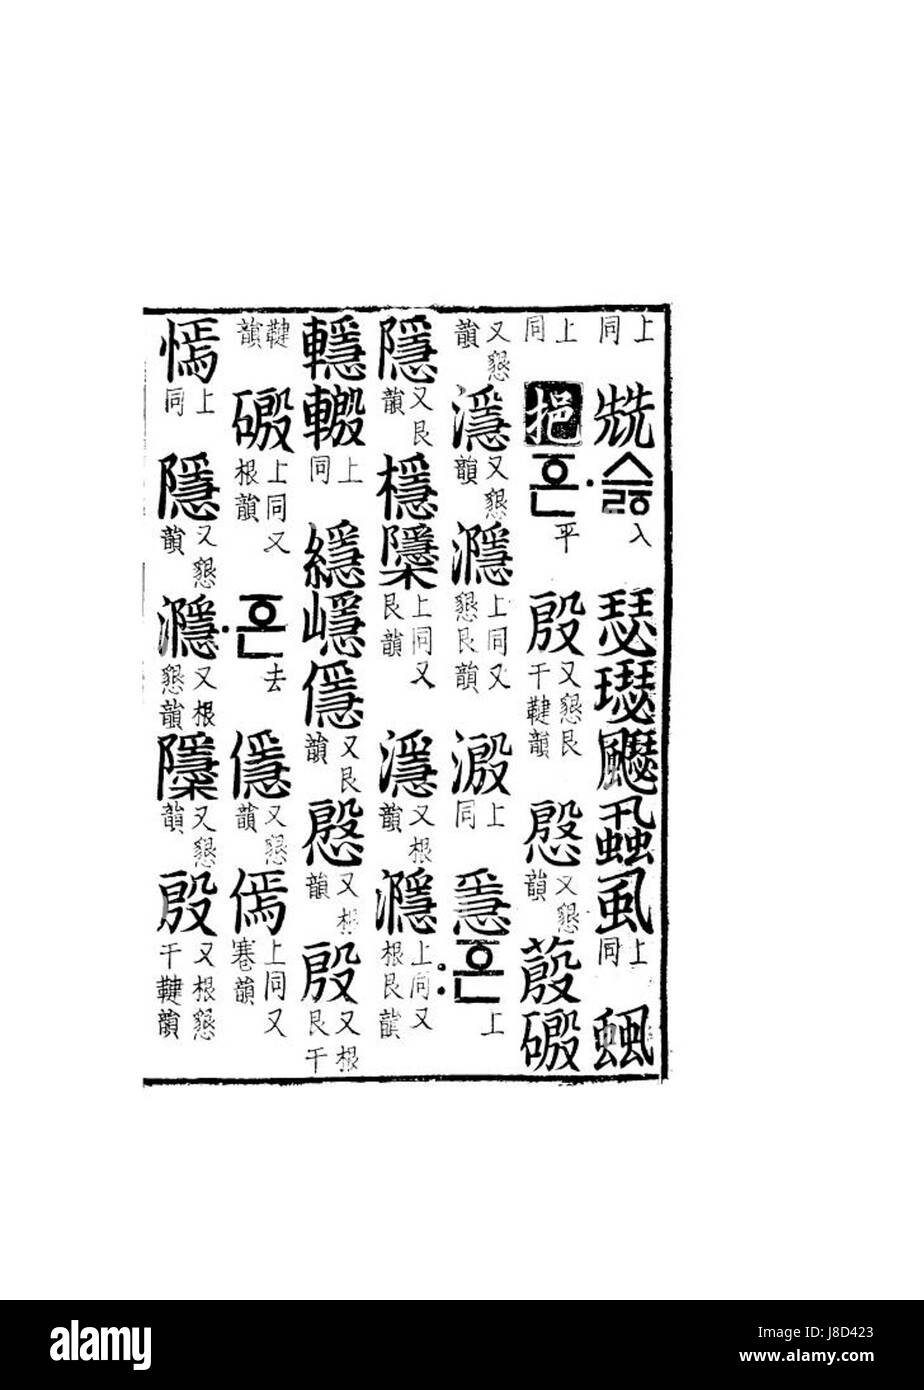 上同 兟 스ᇙ 入 瑟璱飋蝨虱 上同
上同 挹 ᅙᅳᆫ 平 殷 又懇艮干鞬韻 慇 又懇韻 蒑磤
又懇韻 濦 又懇韻 上同又懇艮韻 溵 上同 㥯 ᅙᅳᆫ 上
隱 又艮韻 檼櫽 上同又艮韻 濦 又根韻 上同又根艮韻
上同 嶾 又艮韻 慇 又根韻 殷 又根艮干
鞬韻 磤 上同又根韻 ᅙᅳᆫ 去 又懇韻 傿 上同又蹇韻
上同 隱 又懇韻 又根懇韻 櫽 又懇韻 殷 又根懇干鞬韻
alamy
Image ID: J8D423
www.alamy.com